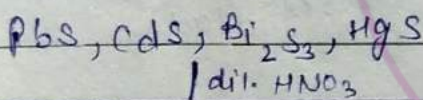 PbS, CdS, Bi₂S₃, HgS
| dil. HNO₃